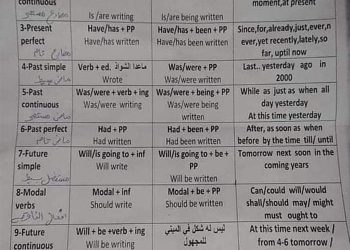 continuous
Is/are writing
Is/are being written
moment,at present
3-Present
perfect
Have/has + PP
Have/has written
Have/has + been + PP
Have/has been written
Since,for,already,just,ever,n
ever,yet recently,lately,so
far, uptil now
4-Past simple
ماضي بسيط
Verb + ed. ماعدا الشواذ
Wrote
Was/were + PP
Was/were written
Last.. yesterday ago in
2000
5-Past
continuous
ماضي مستمر
Was/were + verb + ing
Was/were writing
Was/were + being + PP
Was/were being
written
While as just as when all
day yesterday
At this time yesterday
6-Past perfect
ماضي تام
Had + PP
Had written
Had + been + PP
Had been written
After, as soon as when
before by the time till/ until
7-Future
simple
مستقبل بسيط
Will/is going to + inf
Will write
Will/is going to + be +
PP
Will be written
Tomorrow next soon in the
coming years
8-Modal
verbs
Modal + inf
Should write
Modal + be + PP
Should be written
Can/could will/would
shall/should may/ might
must ought to
9-Future
continuous
Will + be +verb + ing
Will be writing
ليس له شكل في المبني
للمجهول
At this time next week /
from 4-6 tomorrow /